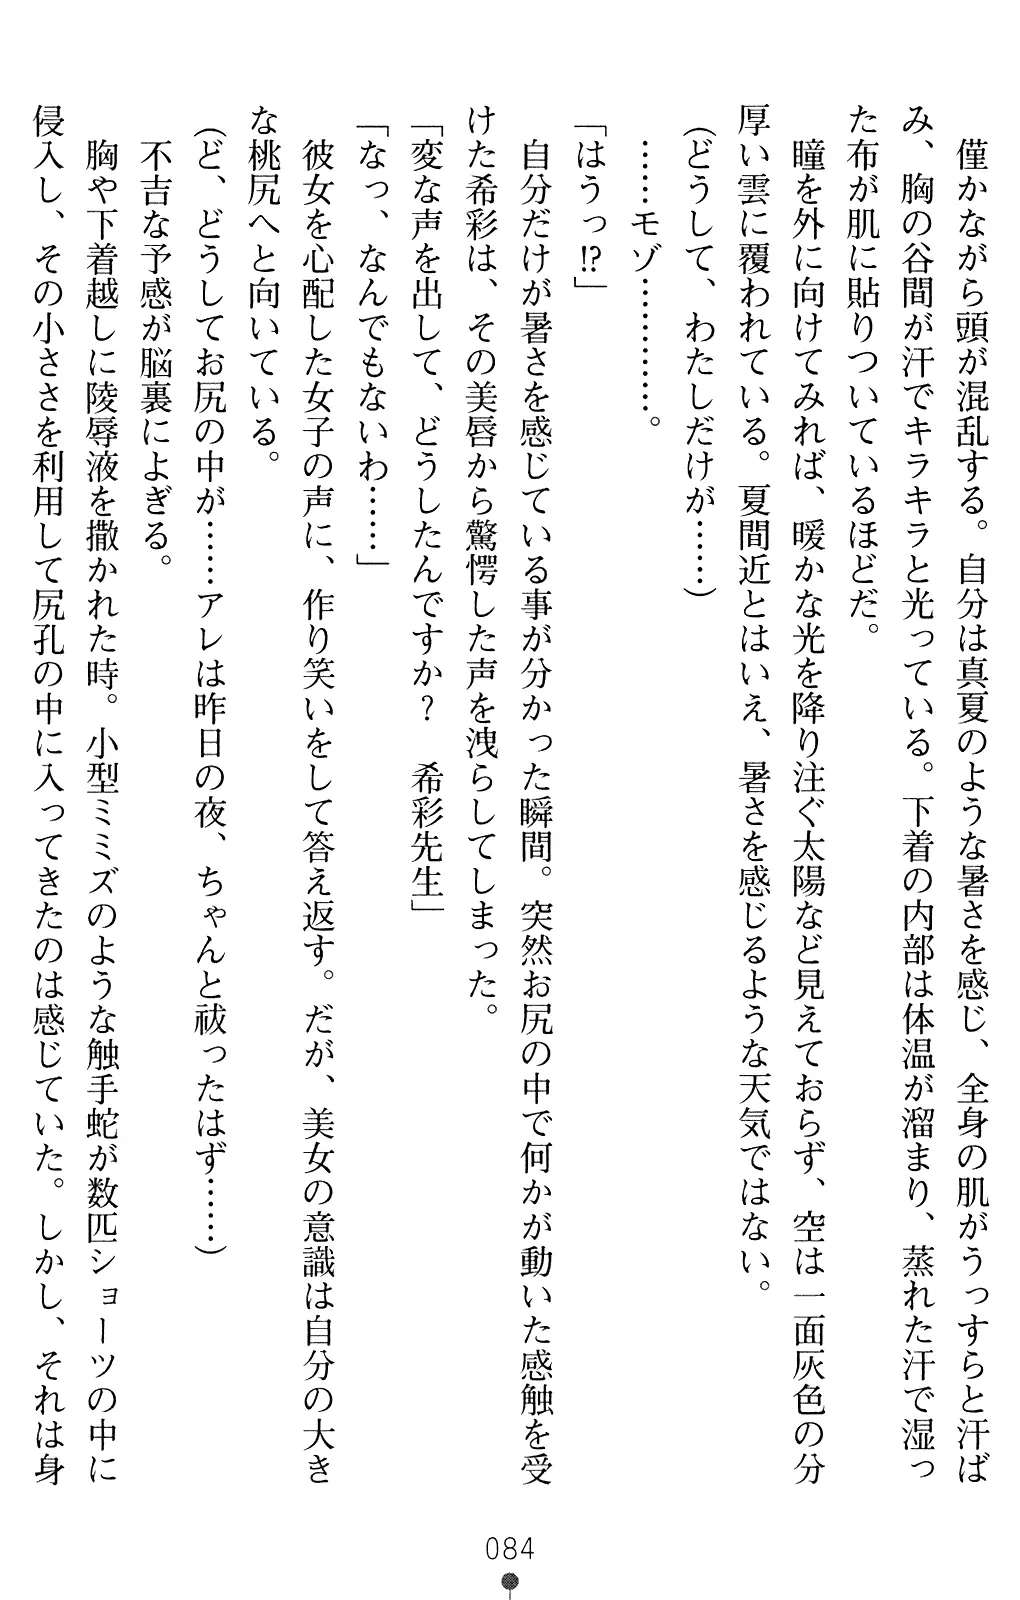 僅かながら頭が混乱する。自分は真夏のような暑さを感じ、全身の肌がうっすらと汗ば
み、胸の谷間が汗でキラキラと光っている。下着の内部は体温が溜まり、蒸れた汗で湿っ
た布が肌に貼りついているほどだ。
　瞳を外に向けてみれば、暖かな光を降り注ぐ太陽など見えておらず、空は一面灰色の分
厚い雲に覆われている。夏間近とはいえ、暑さを感じるような天気ではない。
（どうして、わたしだけが……）
　……モゾ…………。
「はうっ!?」
　自分だけが暑さを感じている事が分かった瞬間。突然お尻の中で何かが動いた感触を受
けた希彩は、その美唇から驚愕した声を洩らしてしまった。
「変な声を出して、どうしたんですか？　希彩先生」
「なっ、なんでもないわ……」
　彼女を心配した女子の声に、作り笑いをして答え返す。だが、美女の意識は自分の大き
な桃尻へと向いている。
（ど、どうしてお尻の中が……アレは昨日の夜、ちゃんと祓ったはず……）
　不吉な予感が脳裏によぎる。
　胸や下着越しに陵辱液を撒かれた時。小型ミミズのような触手蛇が数匹ショーツの中に
侵入し、その小ささを利用して尻孔の中に入ってきたのは感じていた。しかし、それは身
084